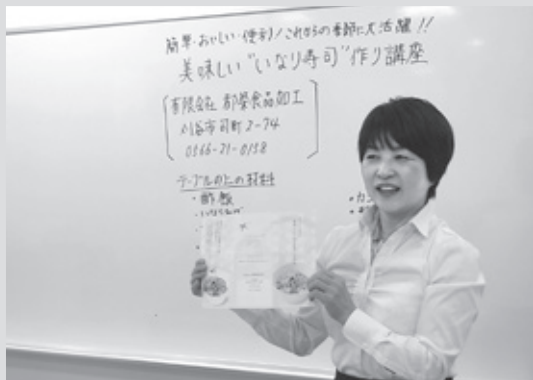 簡単・おいしい・便利!これからの季節に大活躍!!
美味しい"いなり寿司"作り講座
有限会社 都築食品加工
刈谷市司町2-74
0566-21-0158
テーブルの上の材料
・酢飯
・いなりあげ